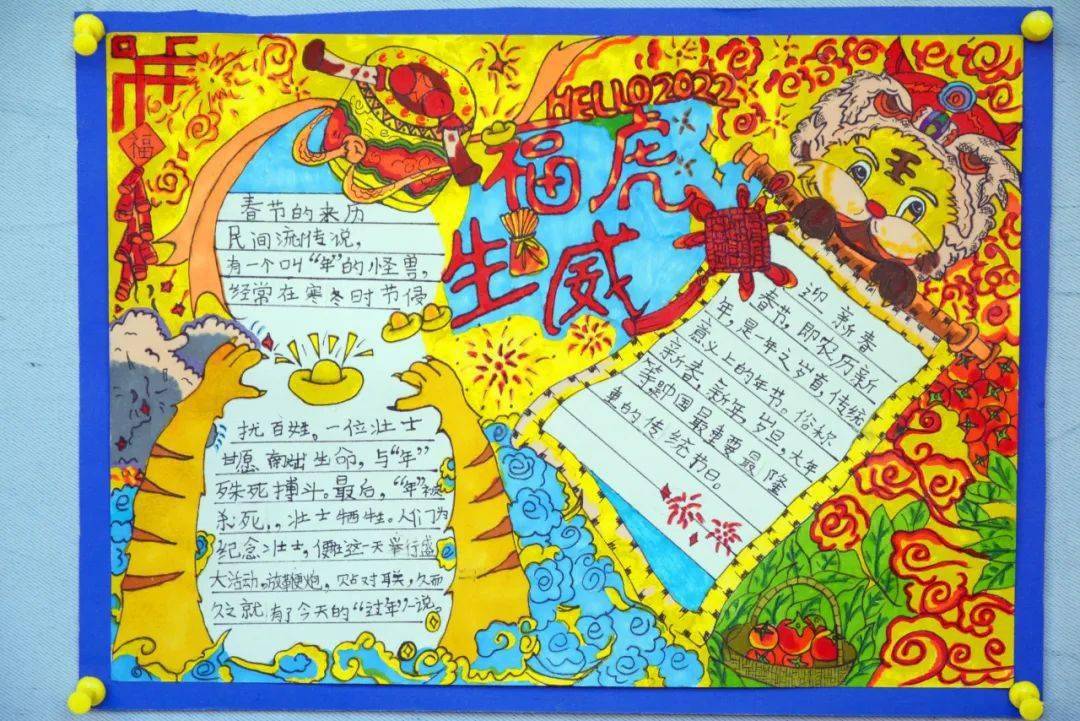 HELLO2022
福虎
生威
福
王
春节的来历
民间流传说,
有一个叫“年”的怪兽,
经常在寒冬时节侵
扰百姓。一位壮士
甘愿献出生命,与“年”
殊死搏斗。最后,“年”被
杀死,,壮士牺牲。人们为
纪念壮士,便在这一天举行盛
大活动。放鞭炮,贴对联,久而
久之就有了今天的“过年”一说。
迎新春
春节,即农历新
年,是一年之岁首,传统
意义上的年节。俗称
新春,新年,岁旦,大年
等国最重要最隆
重的传统节日。